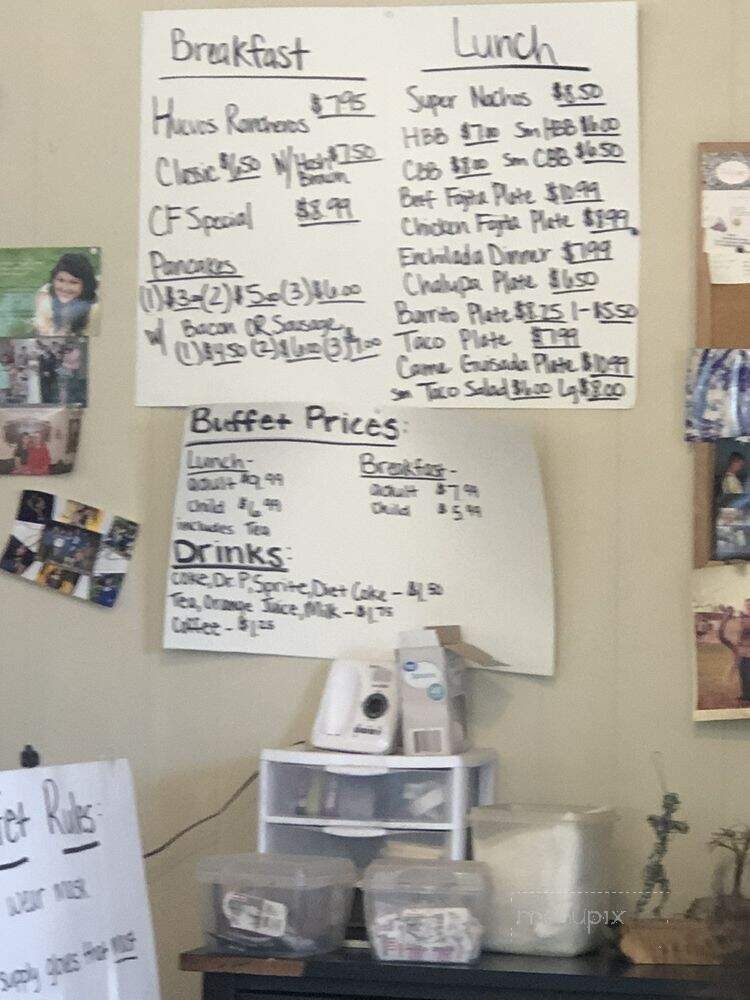 Breakfast
Huevos Rancheros $7.95
Classic $6.50 W/ Hash Brown $7.50
CF Special $8.99
Pancakes
(1) $3.00 (2) $5.00 (3) $6.00
w/ Bacon OR Sausage
(1) $4.50 (2) $6.00 (3) $7.00
Lunch
Super Nachos $8.50
HBB $7.00 Sm HBB $6.00
CBB $8.00 Sm CBB $6.50
Beef Fajita Plate $10.99
Chicken Fajita Plate $8.99
Enchilada Dinner $7.99
Chalupa Plate $6.50
Burrito Plate $8.25 1-$5.50
Taco Plate $7.99
Carne Guisada Plate $10.99
Sm Taco Salad $6.00 Lg $8.00
Buffet Prices:
Lunch-
adult $9.99
child $6.99
includes Tea
Breakfast-
adult $7.99
child $5.99
Drinks:
Coke, Dr. P, Sprite, Diet Coke - $1.50
Tea, Orange Juice, Milk - $1.75
Coffee - $1.25
Rules:
wear mask
supply gloves that must
menupix